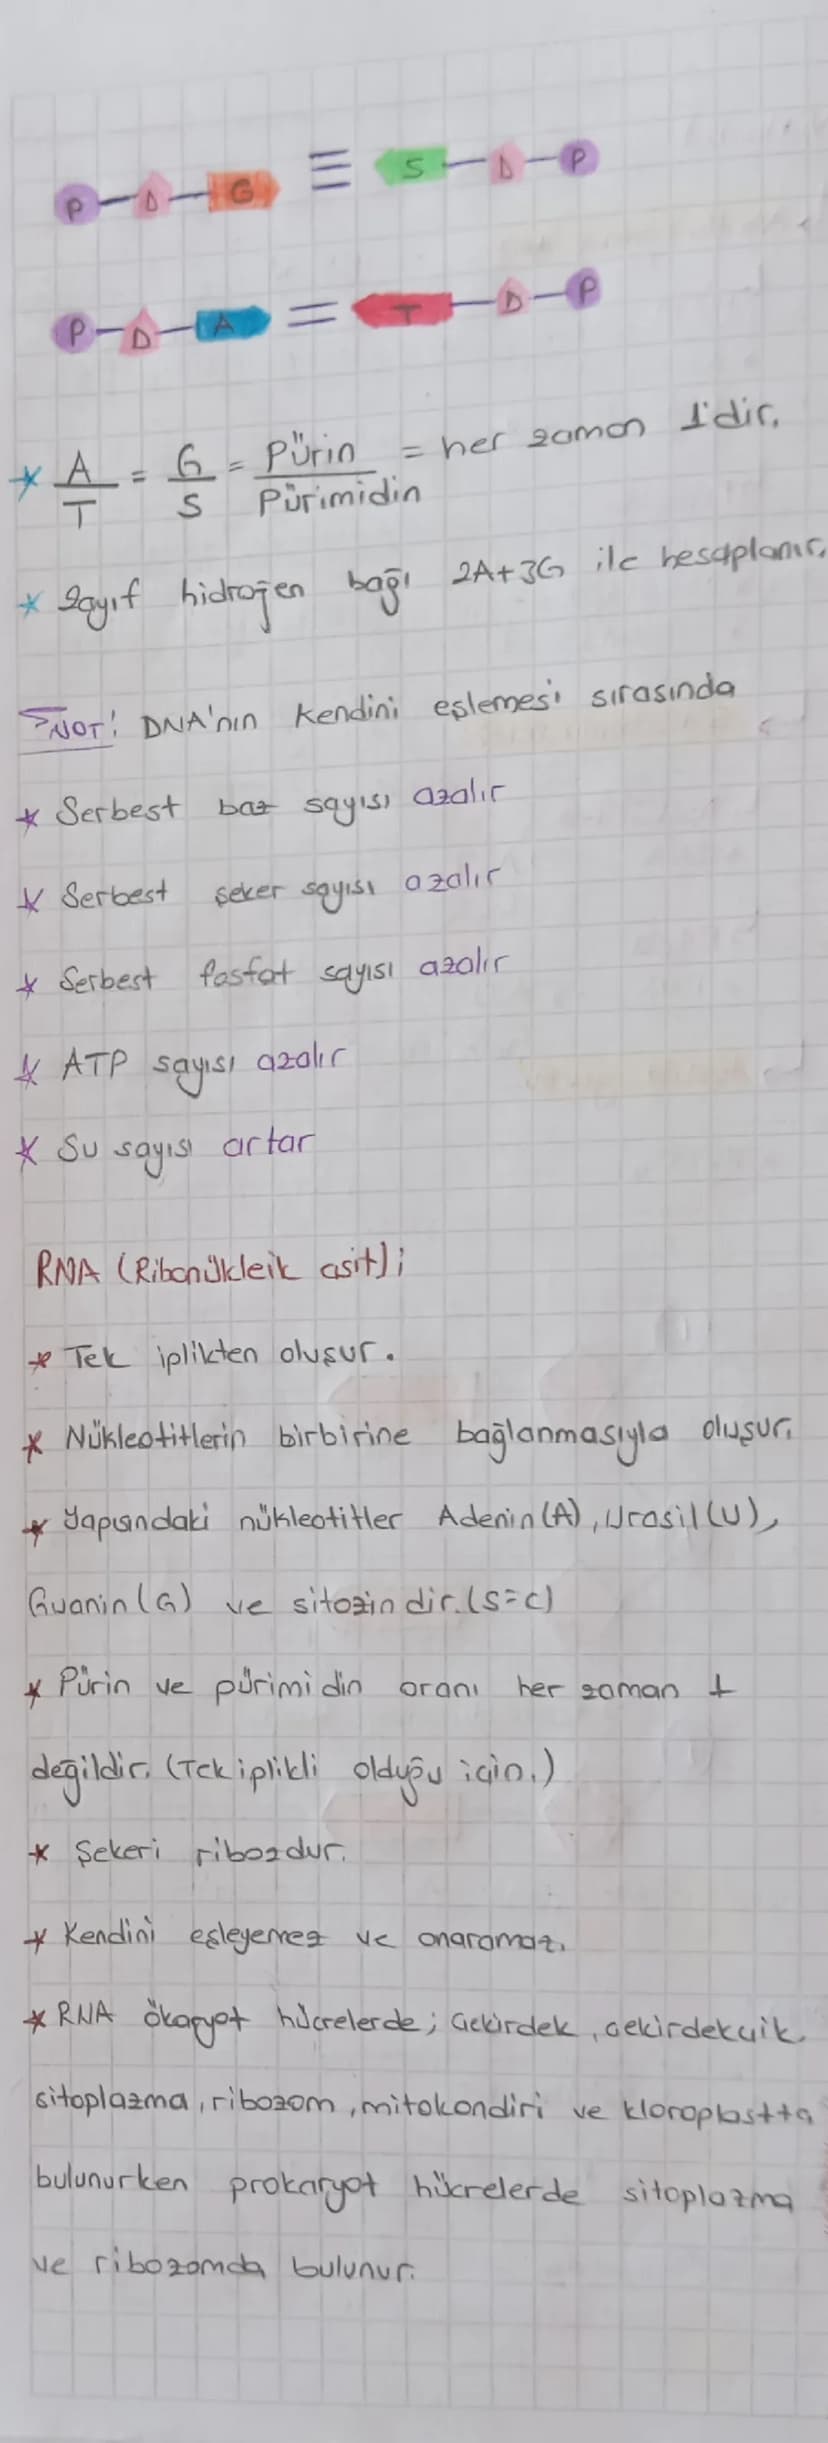 P D G ≡ S D P
P D A = T D P
* A/T = G/S = Pürin/Pürimidin = her zaman 1'dir.
* Zayıf hidrojen bağı 2A+3G ile hesaplanır.
NOT! DNA'nın kendini eşlemesi sırasında
* Serbest baz sayısı azalır
* Serbest şeker sayısı azalır
* Serbest fosfat sayısı azalır
* ATP sayısı azalır
* Su sayısı artar
RNA (Ribonükleik asit);
* Tek iplikten oluşur.
* Nükleotitlerin birbirine bağlanmasıyla oluşur.
* Yapısındaki nükleotitler Adenin(A), Urasil(U),
Guanin(G) ve sitozindir.(S=C)
* Pürin ve pürimidin oranı her zaman 1
değildir. (Tek iplikli olduğu için.)
* Şekeri ribozdur.
* Kendini eşleyemez ve onaramaz.
* RNA ökaryot hücrelerde; çekirdek, çekirdekçik,
sitoplazma, ribozom, mitokondiri ve kloroplastta
bulunurken prokaryot hücrelerde sitoplazma
ve ribozomda bulunur.